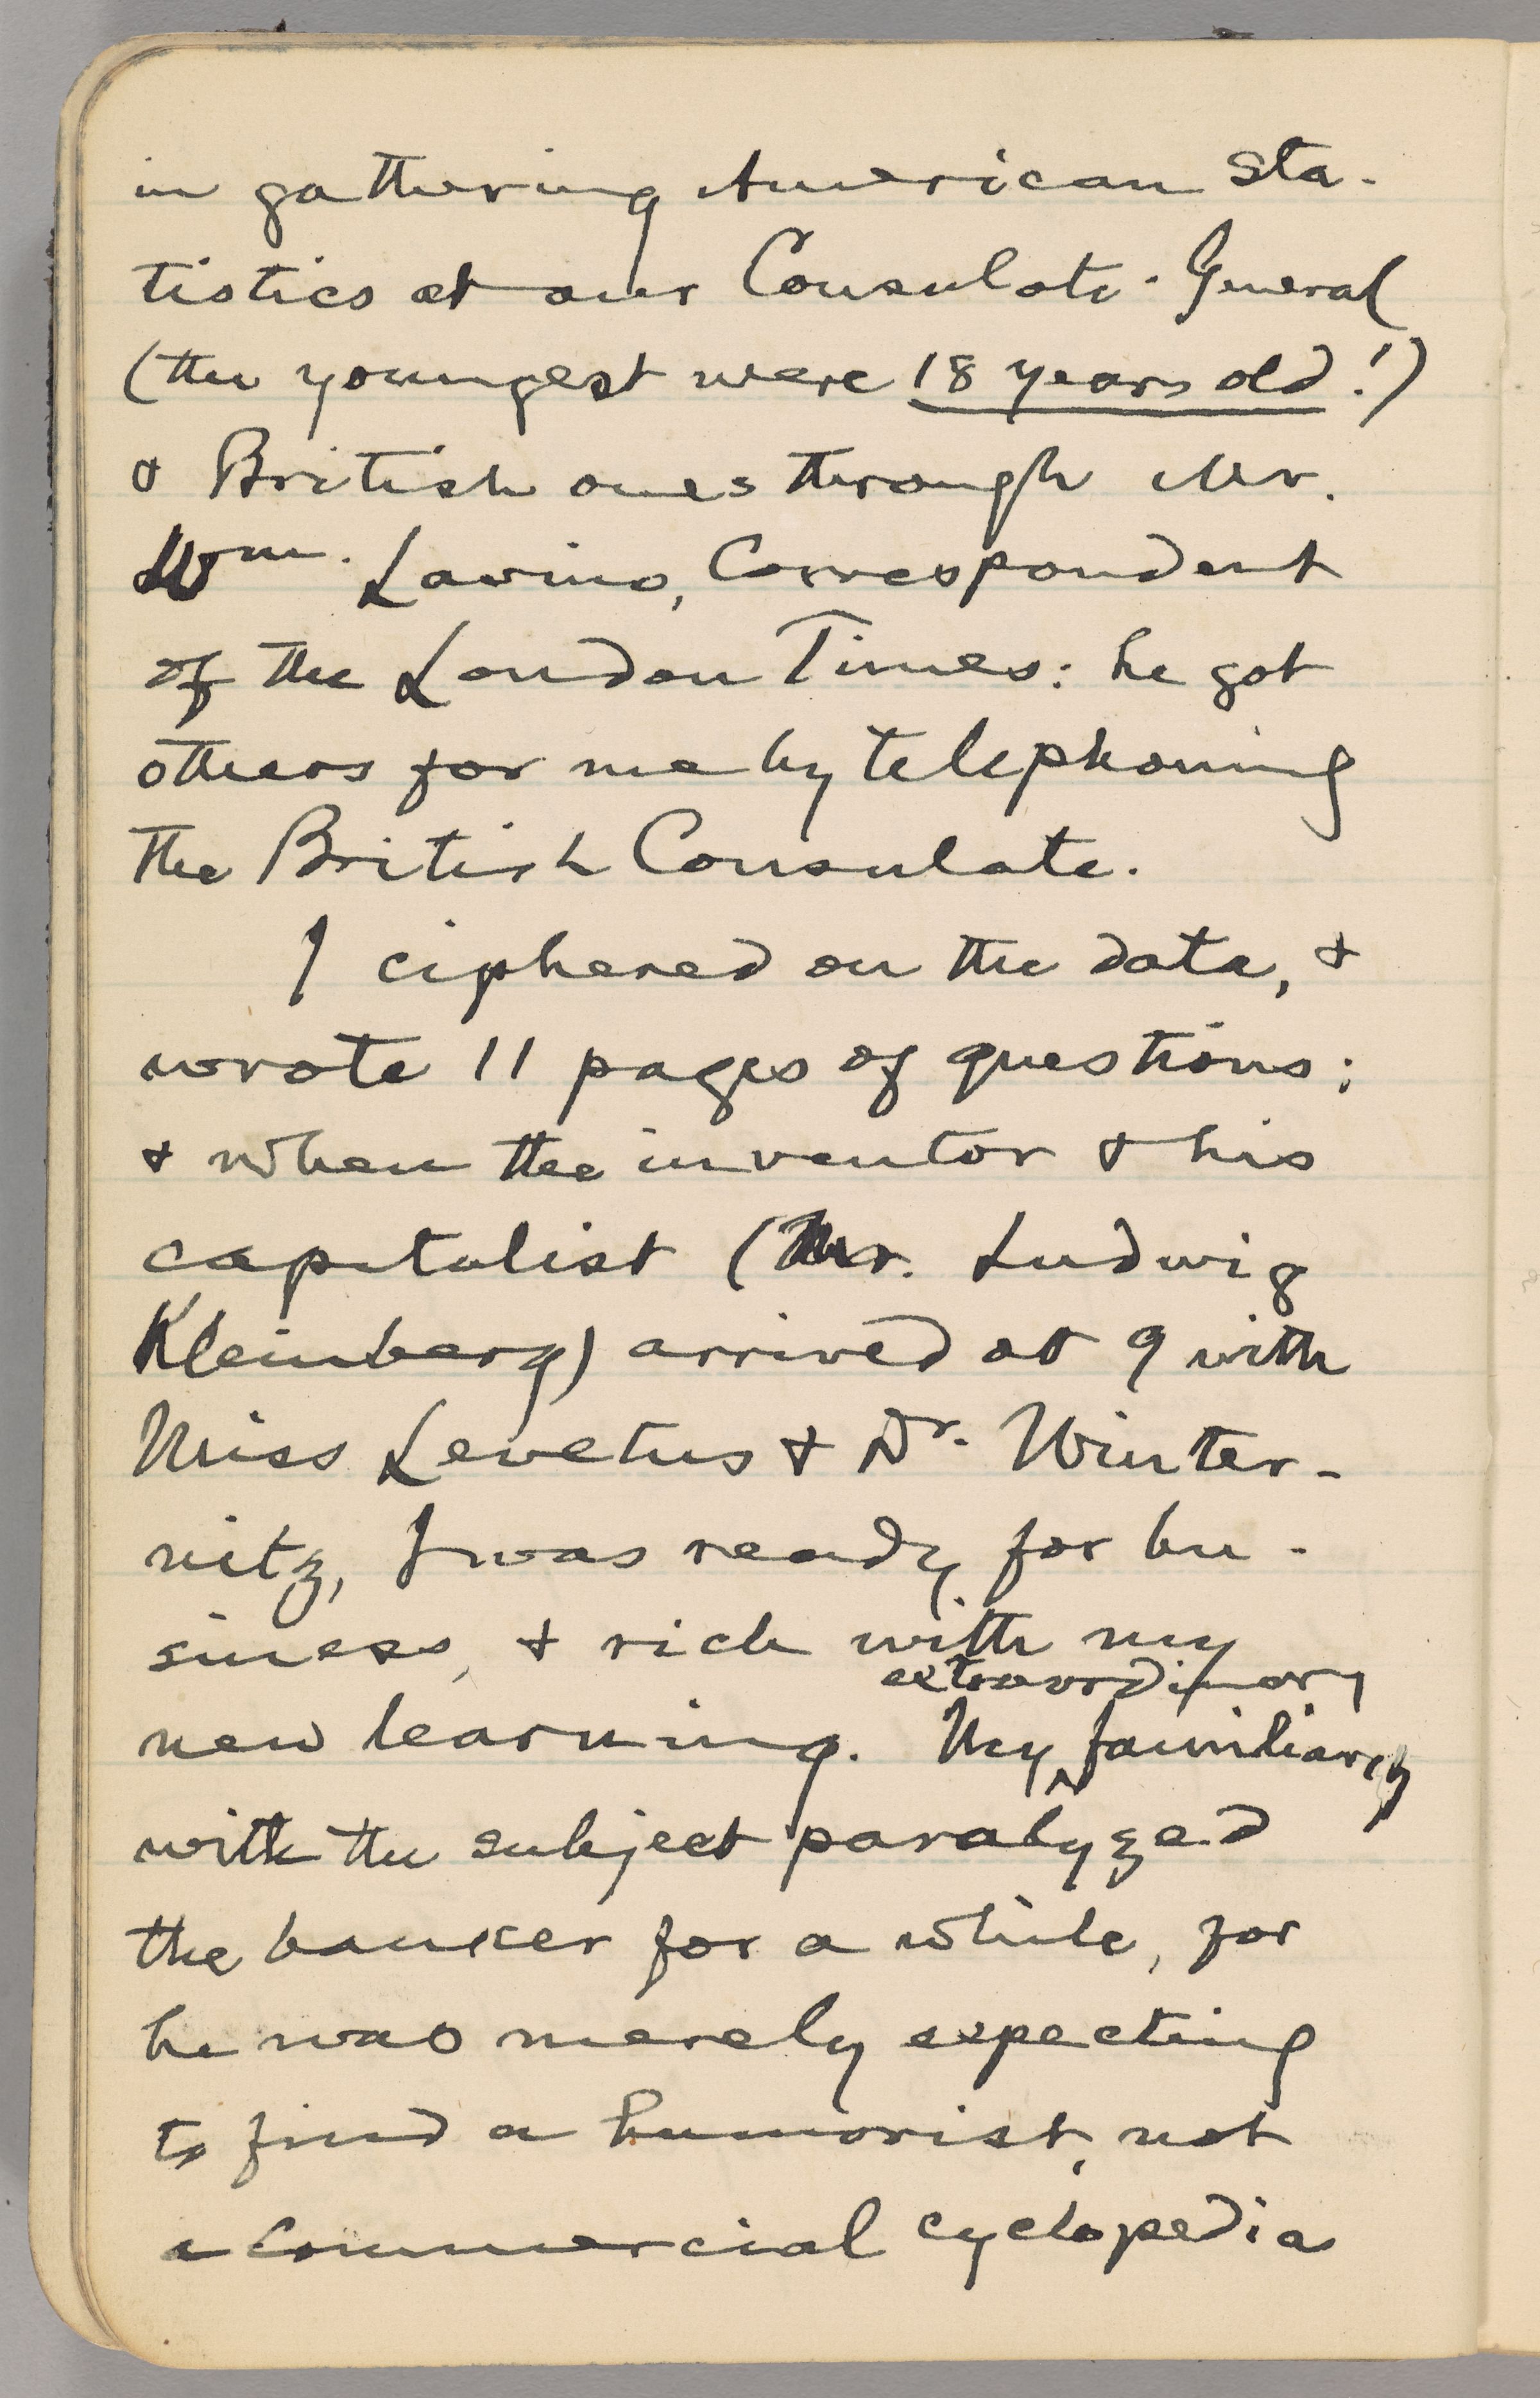 in gathering American sta-
tistics at our Consulate-General
(the youngest were 18 years old!)
& British ones through Mr.
Wm. Lavino, Correspondent
of the London Times: he got
others for me by telephoning
the British Consulate.
I ciphered on the data, &
wrote 11 pages of questions;
& when the inventor & his
capitalist (Mr. Ludwig
Kleinberg) arrived at 9 with
Miss Levetus & Dr. Winter-
nitz, I was ready for bu-
siness, & rich with my
new learning. My extraordinary familiarity
with the subject paralyzed
the banker for a while, for
he was merely expecting
to find a humorist, not
a commercial cyclopedia